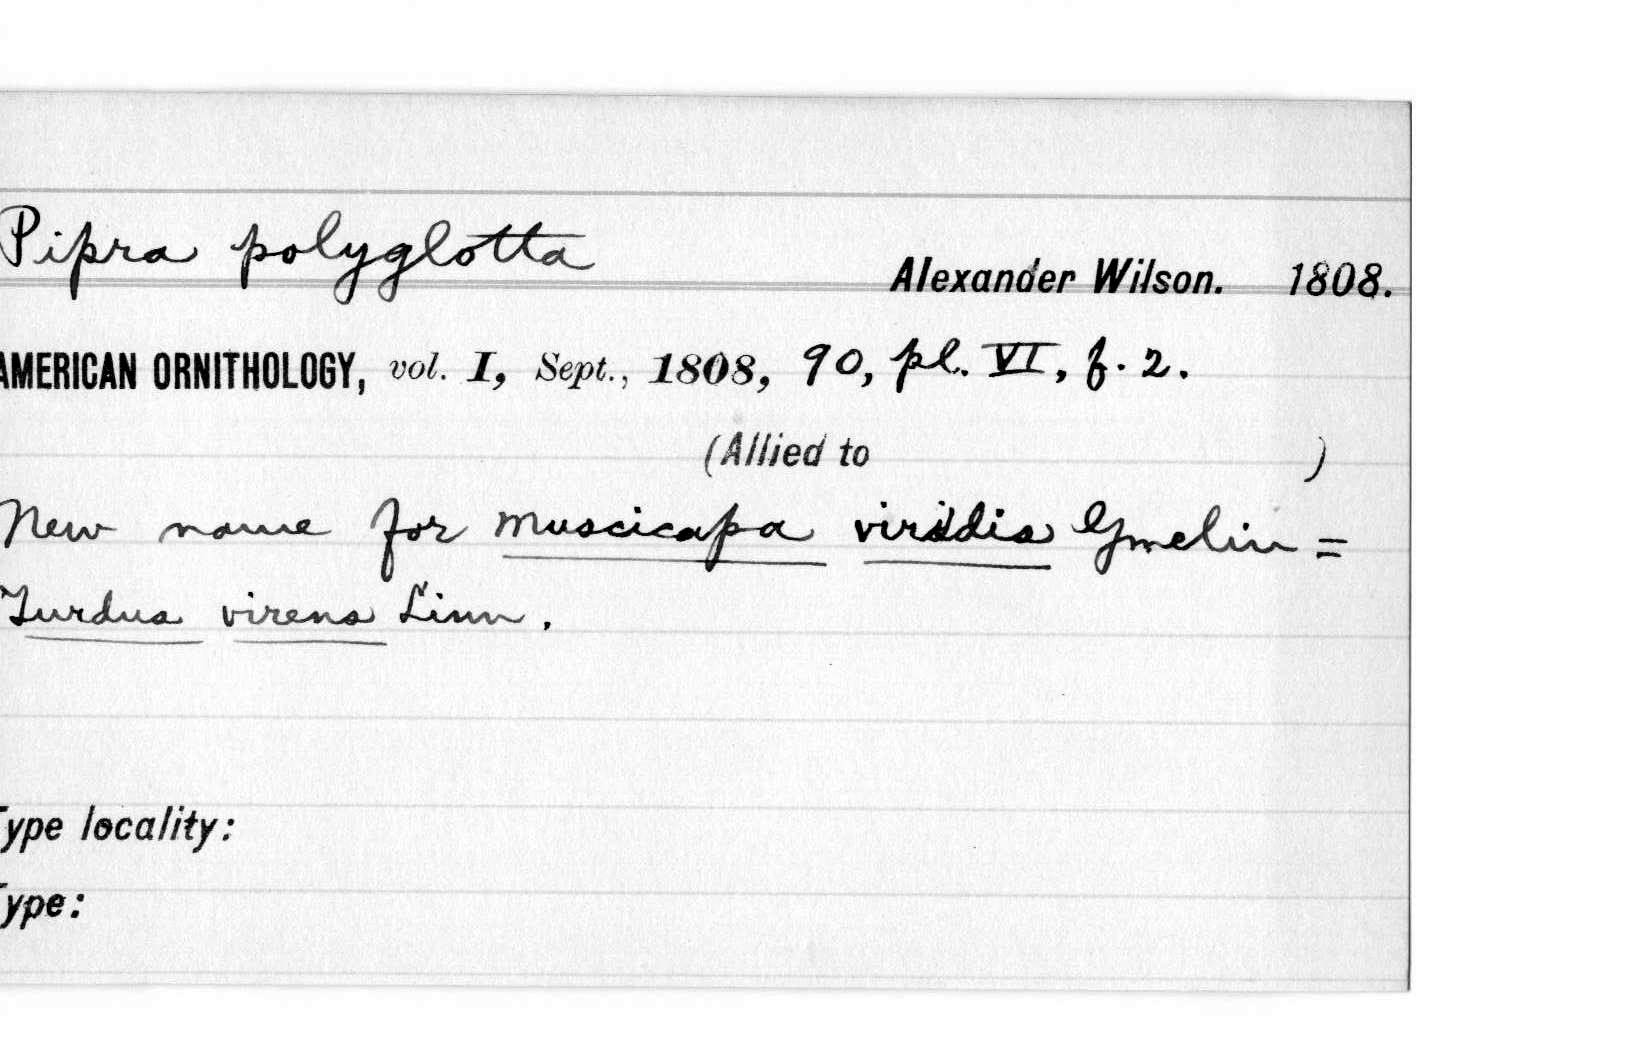 Pipra polyglotta
Alexander Wilson. 1808.
AMERICAN ORNITHOLOGY, vol. I, Sept., 1808, 90, pl. VI, f. 2.
(Allied to )
New name for Muscicapa viridis Gmelin =
Turdus virens Linn.
Type locality:
Type: